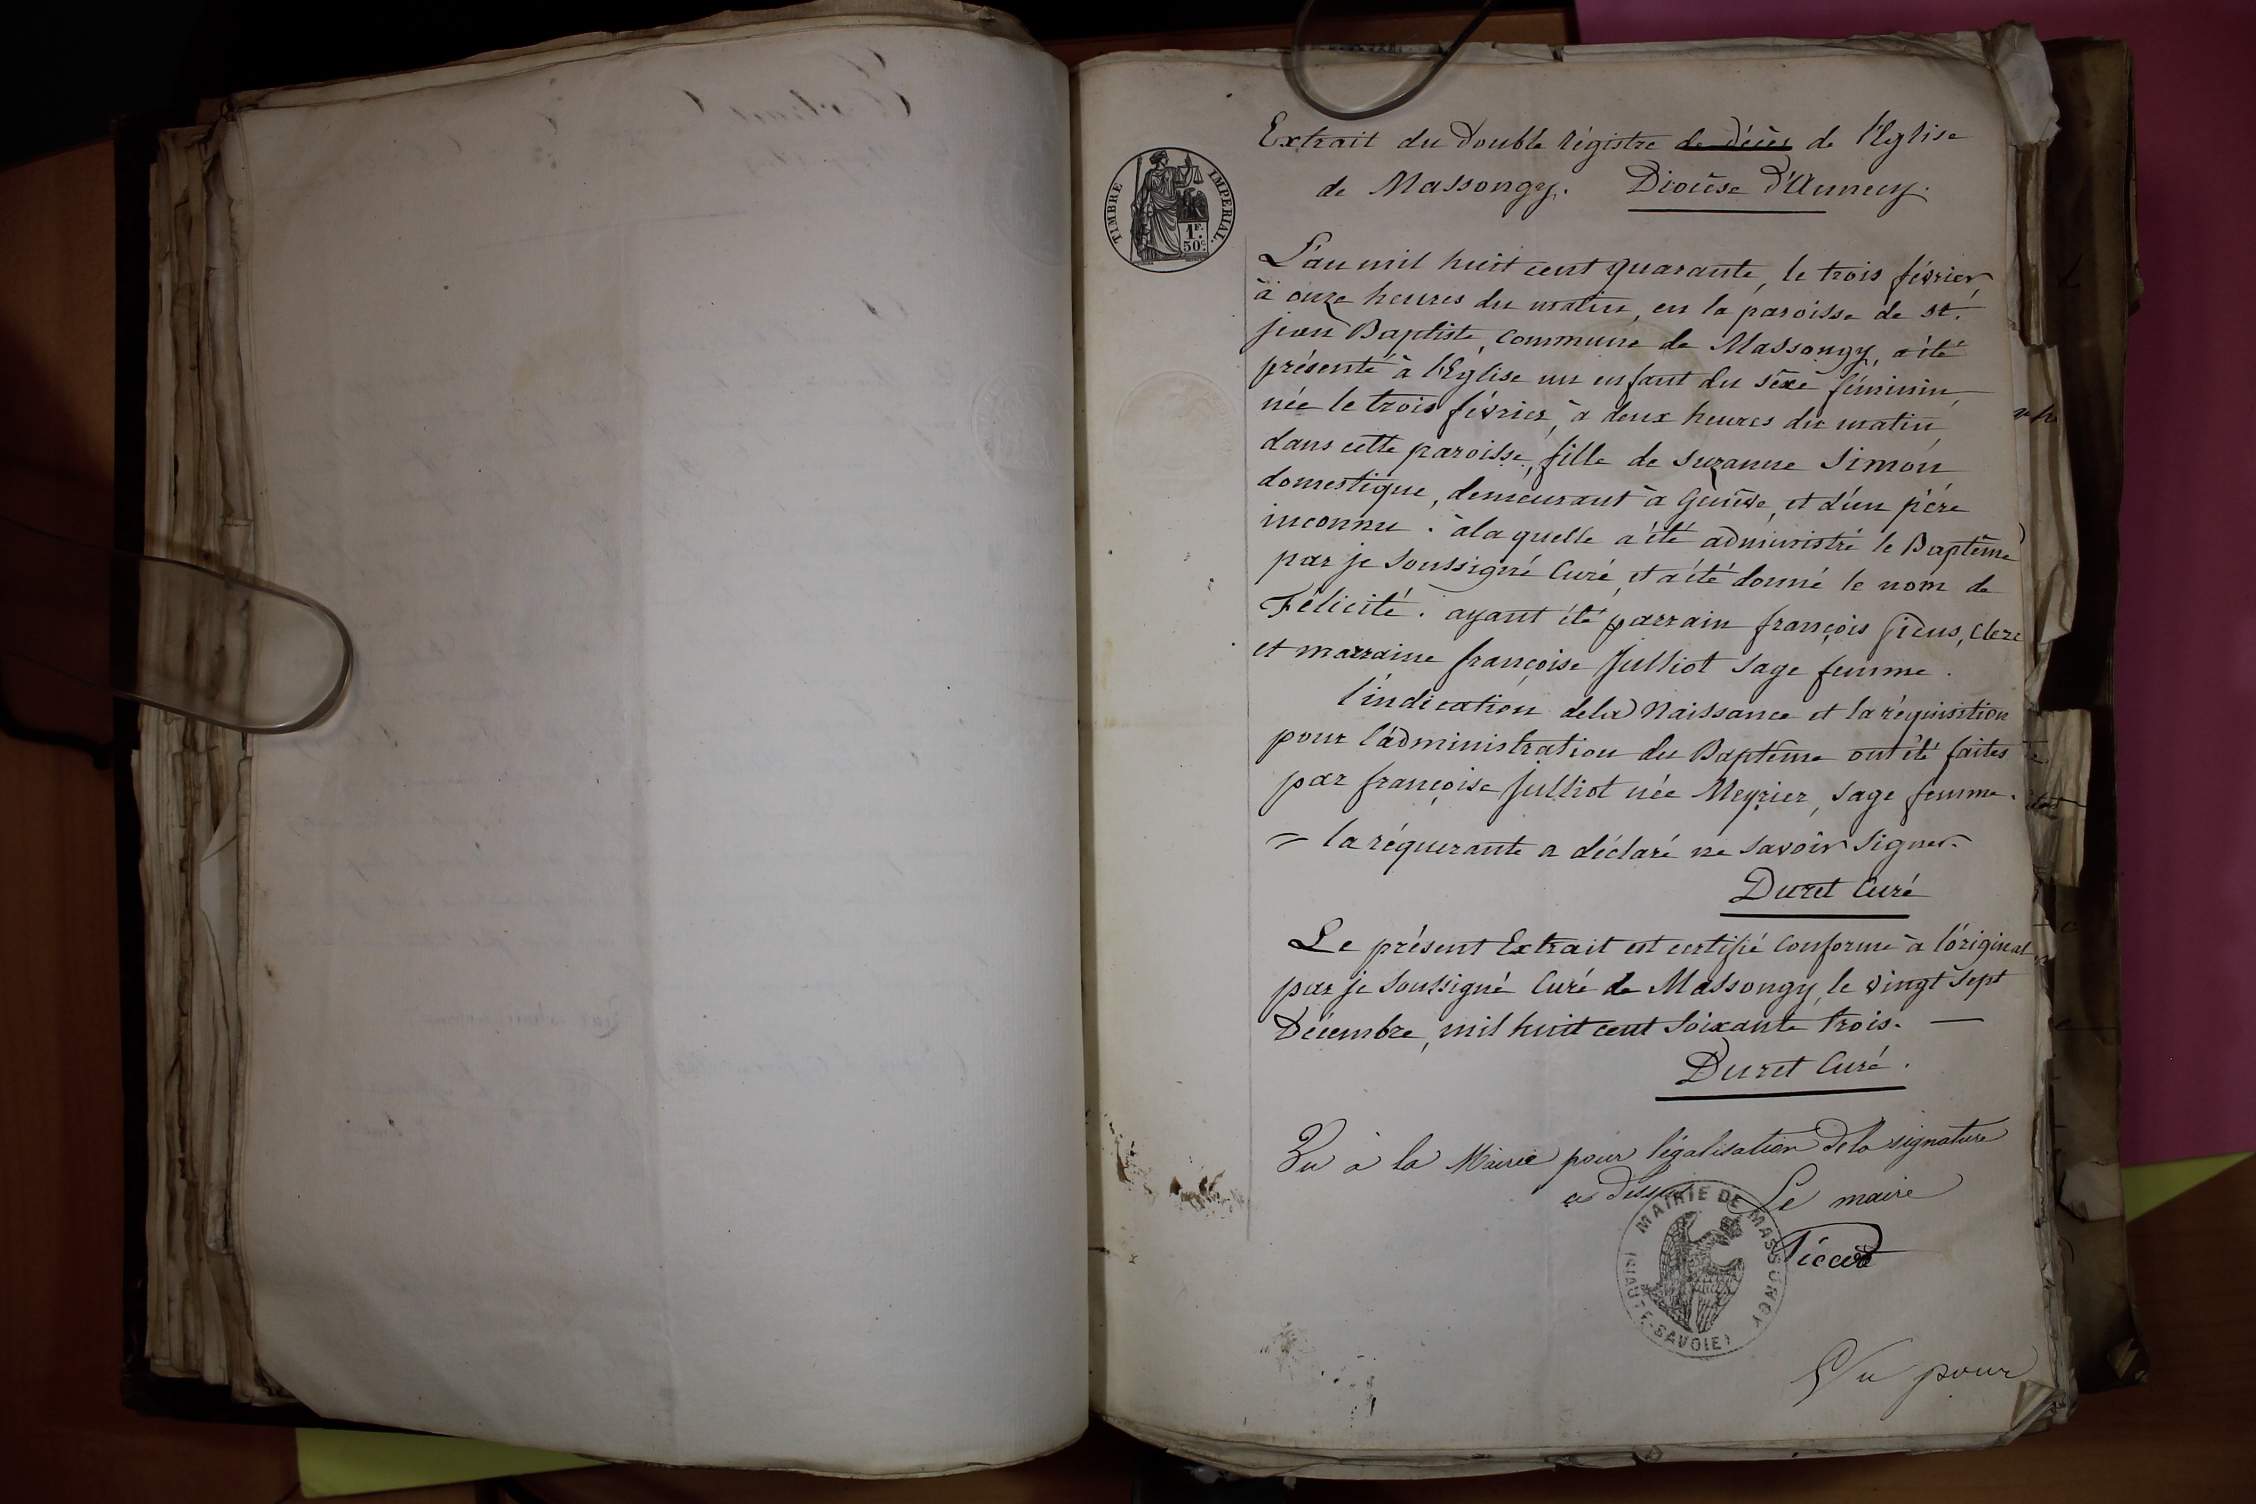 Extrait du Double régistre de décès de l'Eglise
de Massongy. Diocèse d'Annecy.
TIMBRE IMPERIAL.
1F. 50c.
L'an mil huit cent quarante, le trois février,
à onze heures du matin, en la paroisse de st.
jean Baptiste, commune de Massongy, a été
présenté à l'Eglise un enfant du séxe féminin,
née le trois février, à deux heures du matin,
dans cette paroisse, fille de suzanne Simon
domestique, demeurant à Genève, et d'un père
inconnu. à la quelle a été administré le Baptême
par je soussigné Curé, et a été donné le nom de
Félicité. ayant été parrain françois , Clerc
et marraine françoise Julliot sage femme.
l'indication de la Naissance et la réquisition
pour l'administration du Baptême ont été faites
par françoise Julliot née Meyrier, sage femme.
= la réquerante a déclaré ne savoir signer.
Duret Curé
Le présent Extrait est certifié Conforme à l'original
par je soussigné Curé de Massongy, le vingt sept
Décembre, mil huit cent soixante trois. —
Duret Curé.
Vu à la Mairie pour légalisation de la signature
ci dessus Le maire
MAIRIE DE MASSONGY
(HAUTE-SAVOIE)
Vu pour